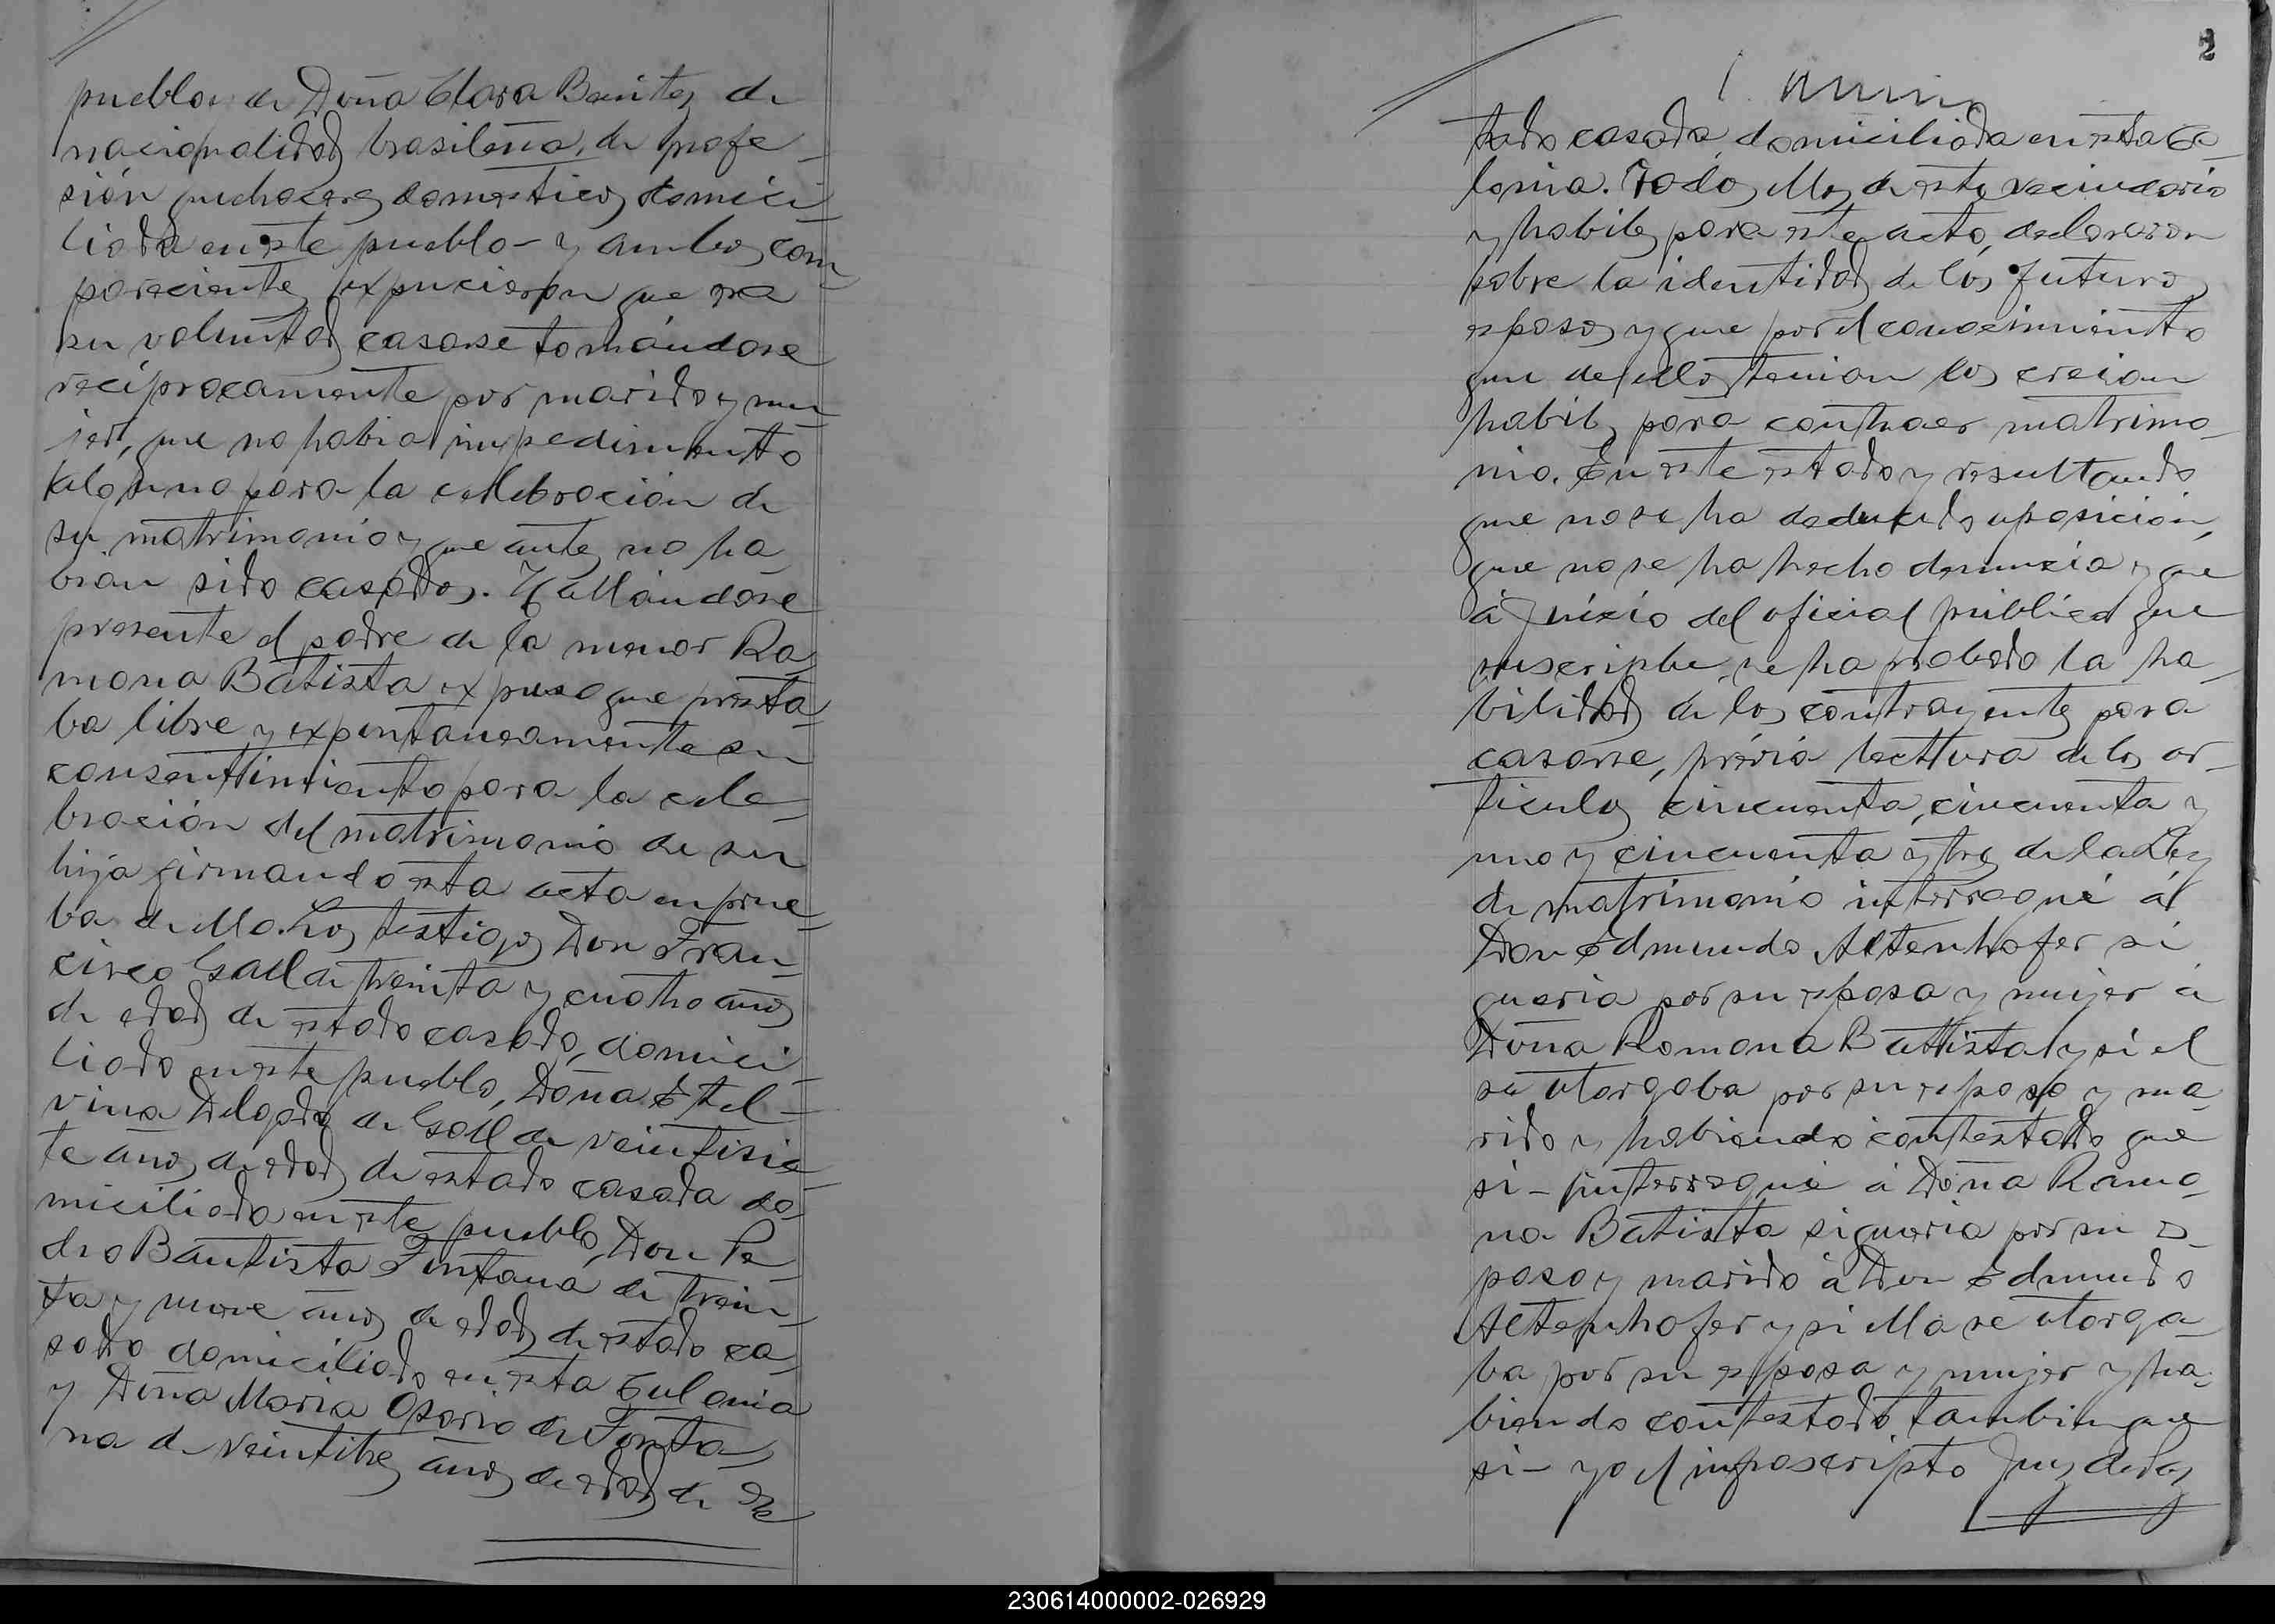 pueblo de Doña Clara Benitez de
nacionalidad brasileña, de profe-
sión quehaceres domesticos domici-
liada en este pueblo - y ambos com-
parecientes expucieron que era
su voluntad casarse tomándose
recíprocamente por marido y mu-
jer, que no habia impedimento
alguno para la celebración de
su matrimonio y que antes no ha-
bian sido casados. Hallándose
presente el padre de la menor Ra-
mona Batista expuso que presta-
ba libre y expontaneamente su
consentimiento para la cele-
bración del matrimonio de su
hija firmando esta acta en prue-
ba de ello. Los testigos Don Fran-
cisco Gall de treinta y cuatro años
de edad de estado casado, domici-
liado en este pueblo, Doña Etel-
vina Delgado de Gall de veintisie-
te años de edad de estado casada do-
miciliada en este pueblo, Don Pe-
dro Bautista Fontana de trein-
ta y nueve años de edad de estado ca-
sado domiciliado en esta Colonia
y Doña Maria Osorio de Fonta-
na de veintitres años de edad de es
2
tado casada, domiciliada en esta Co-
lonia. Todos ellos de este vecindario
y habiles para este acto, declararon
sobre la identidad de los futuros
esposos y que por el conocimiento
que de ellos tenian los creian
habiles para contraer matrimo-
nio. En este estado y resultando
que no se ha deducido oposición,
que no se ha hecho denuncia y que
á juicio del oficial público que
suscribe, se ha probado la ha-
bilidad de los contrayentes para
casarse, prévia lecttura de los ar-
ticulos cincuenta, cincuenta y
uno y cincuenta y tres de la Ley
de matrimonio interrogué á
Don Edmundo Altenhofer si
queria por su esposa y mujer á
Doña Ramona Battista y si el
se otorgaba por su esposo y ma-
rido y habiendo contestado que
si - interrogué á Doña Ramo-
na Batista si queria por su es-
poso y marido á Don Edmundo
Altenhofer y si ella se otorga-
ba por su esposa y mujer y ha-
biendo contestado tambien que
si - yo el infrascripto Juez de Paz